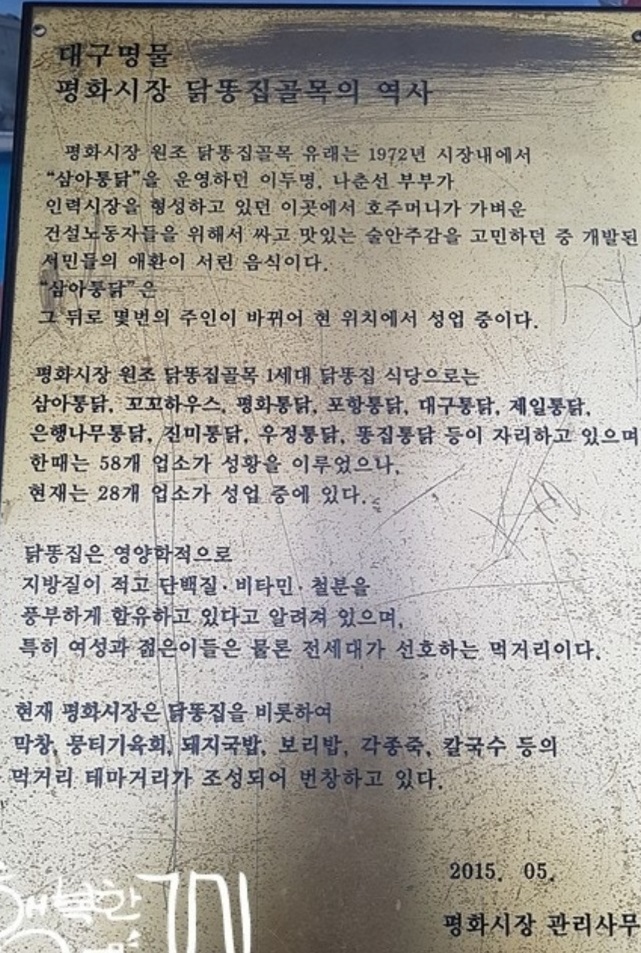 대구명물
평화시장 닭똥집골목의 역사
평화시장 원조 닭똥집골목 유래는 1972년 시장내에서
“삼아통닭”을 운영하던 이두명. 나춘선 부부가
인력시장을 형성하고 있던 이곳에서 호주머니가 가벼운
건설노동자들을 위해서 싸고 맛있는 술안주감을 고민하던 중 개발된
서민들의 애환이 서린 음식이다.
“삼아통닭”은
그 뒤로 몇번의 주인이 바뀌어 현 위치에서 성업 중이다.
평화시장 원조 닭똥집골목 1세대 닭똥집 식당으로는
삼아통닭, 꼬꼬하우스, 평화통닭, 포항통닭, 대구통닭, 제일통닭,
은행나무통닭, 진미통닭, 우정통닭, 똥집통닭 등이 자리하고 있으며
한때는 58개 업소가 성황을 이루었으나,
현재는 28개 업소가 성업 중에 있다.
닭똥집은 영양학적으로
지방질이 적고 단백질·비타민·철분을
풍부하게 함유하고 있다고 알려져 있으며,
특히 여성과 젊은이들은 물론 전세대가 선호하는 먹거리이다.
현재 평화시장은 닭똥집을 비롯하여
막창, 뭉티기육회, 돼지국밥, 보리밥, 각종죽, 칼국수 등의
먹거리 테마거리가 조성되어 번창하고 있다.
2015. 05.
평화시장 관리사무
행복한